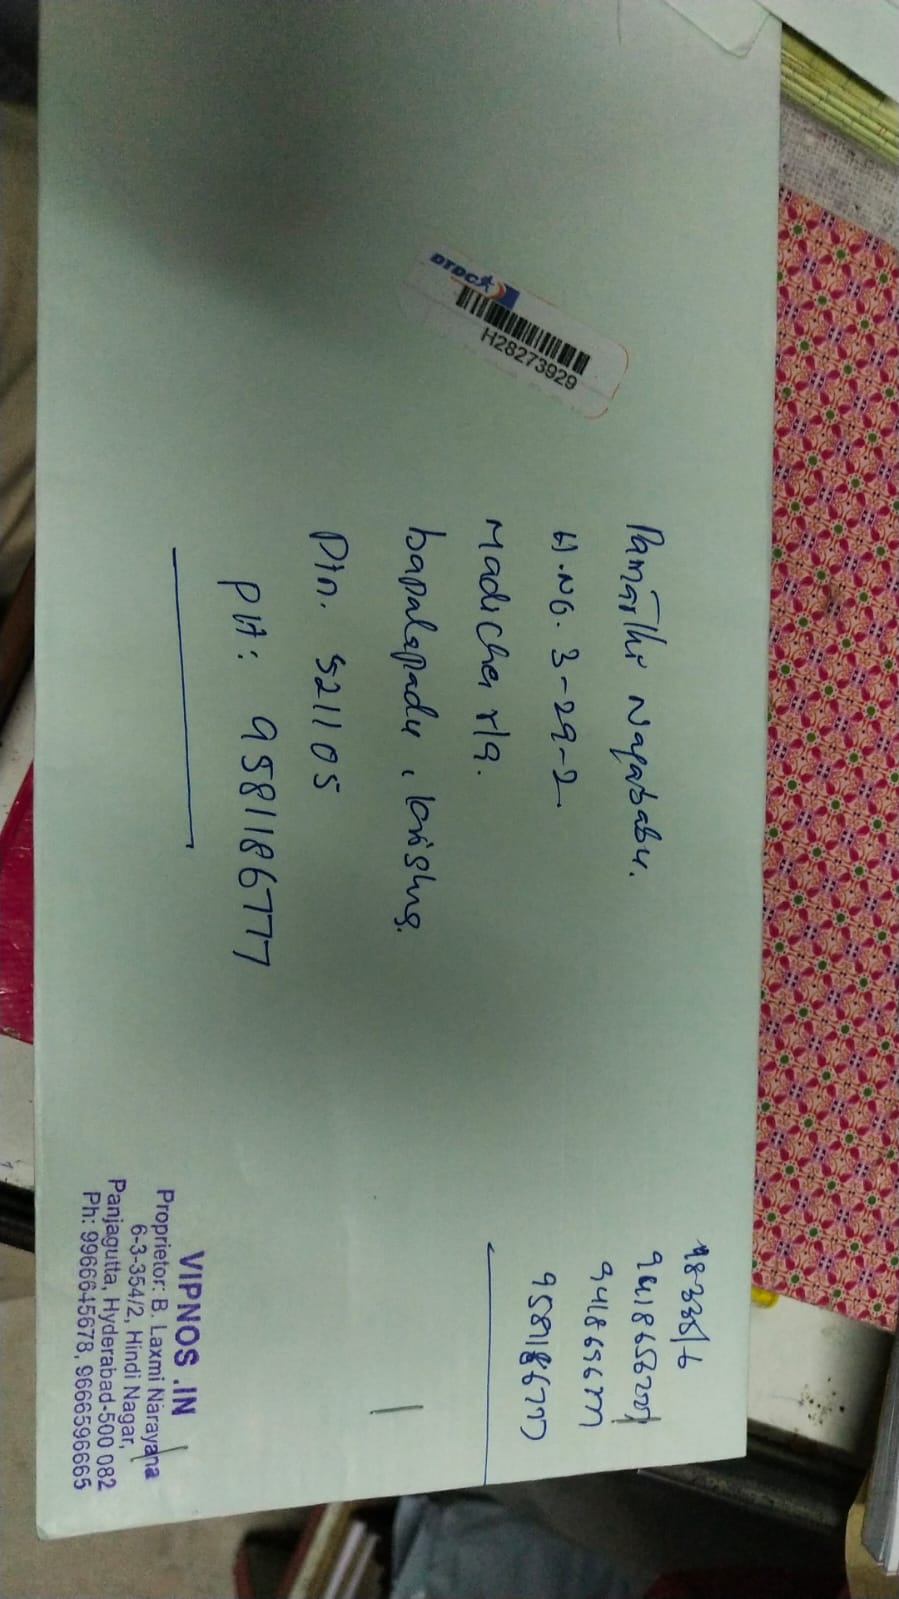 Pamarthi Nagababu.
H.No. 3-29-2
Madicherla.
bapalapadu, krishna.
Pin. 521105
PH: 9581186777
DTDC
H28273929
9581186777
VIPNOS.IN
Proprietor: B. Laxmi Narayana
6-3-354/2, Hindi Nagar,
Panjagutta, Hyderabad-500 082
Ph: 9966645678, 9666596665